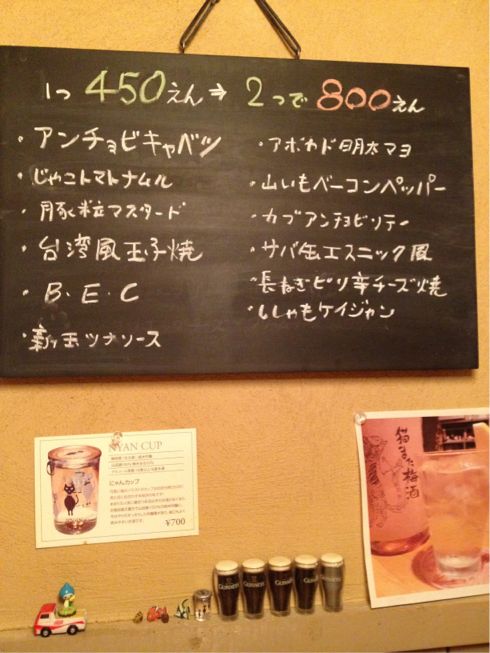 1つ 450えん → 2つで 800えん
・アンチョビキャベツ
・じゃこトマトナムル
・豚粒マスタード
・台湾風玉子焼
・B・E・C
・新玉ツナソース
・アボカド明太マヨ
・山いもベーコンペッパー
・カブアンチョビソテー
・サバ缶エスニック風
・長ねぎピリ辛チーズ焼
・ししゃもケイジャン
NYAN CUP
にゃんカップ
¥700
猫また梅酒
GUINNESS
GUINNESS
GUINNESS
GUINNESS